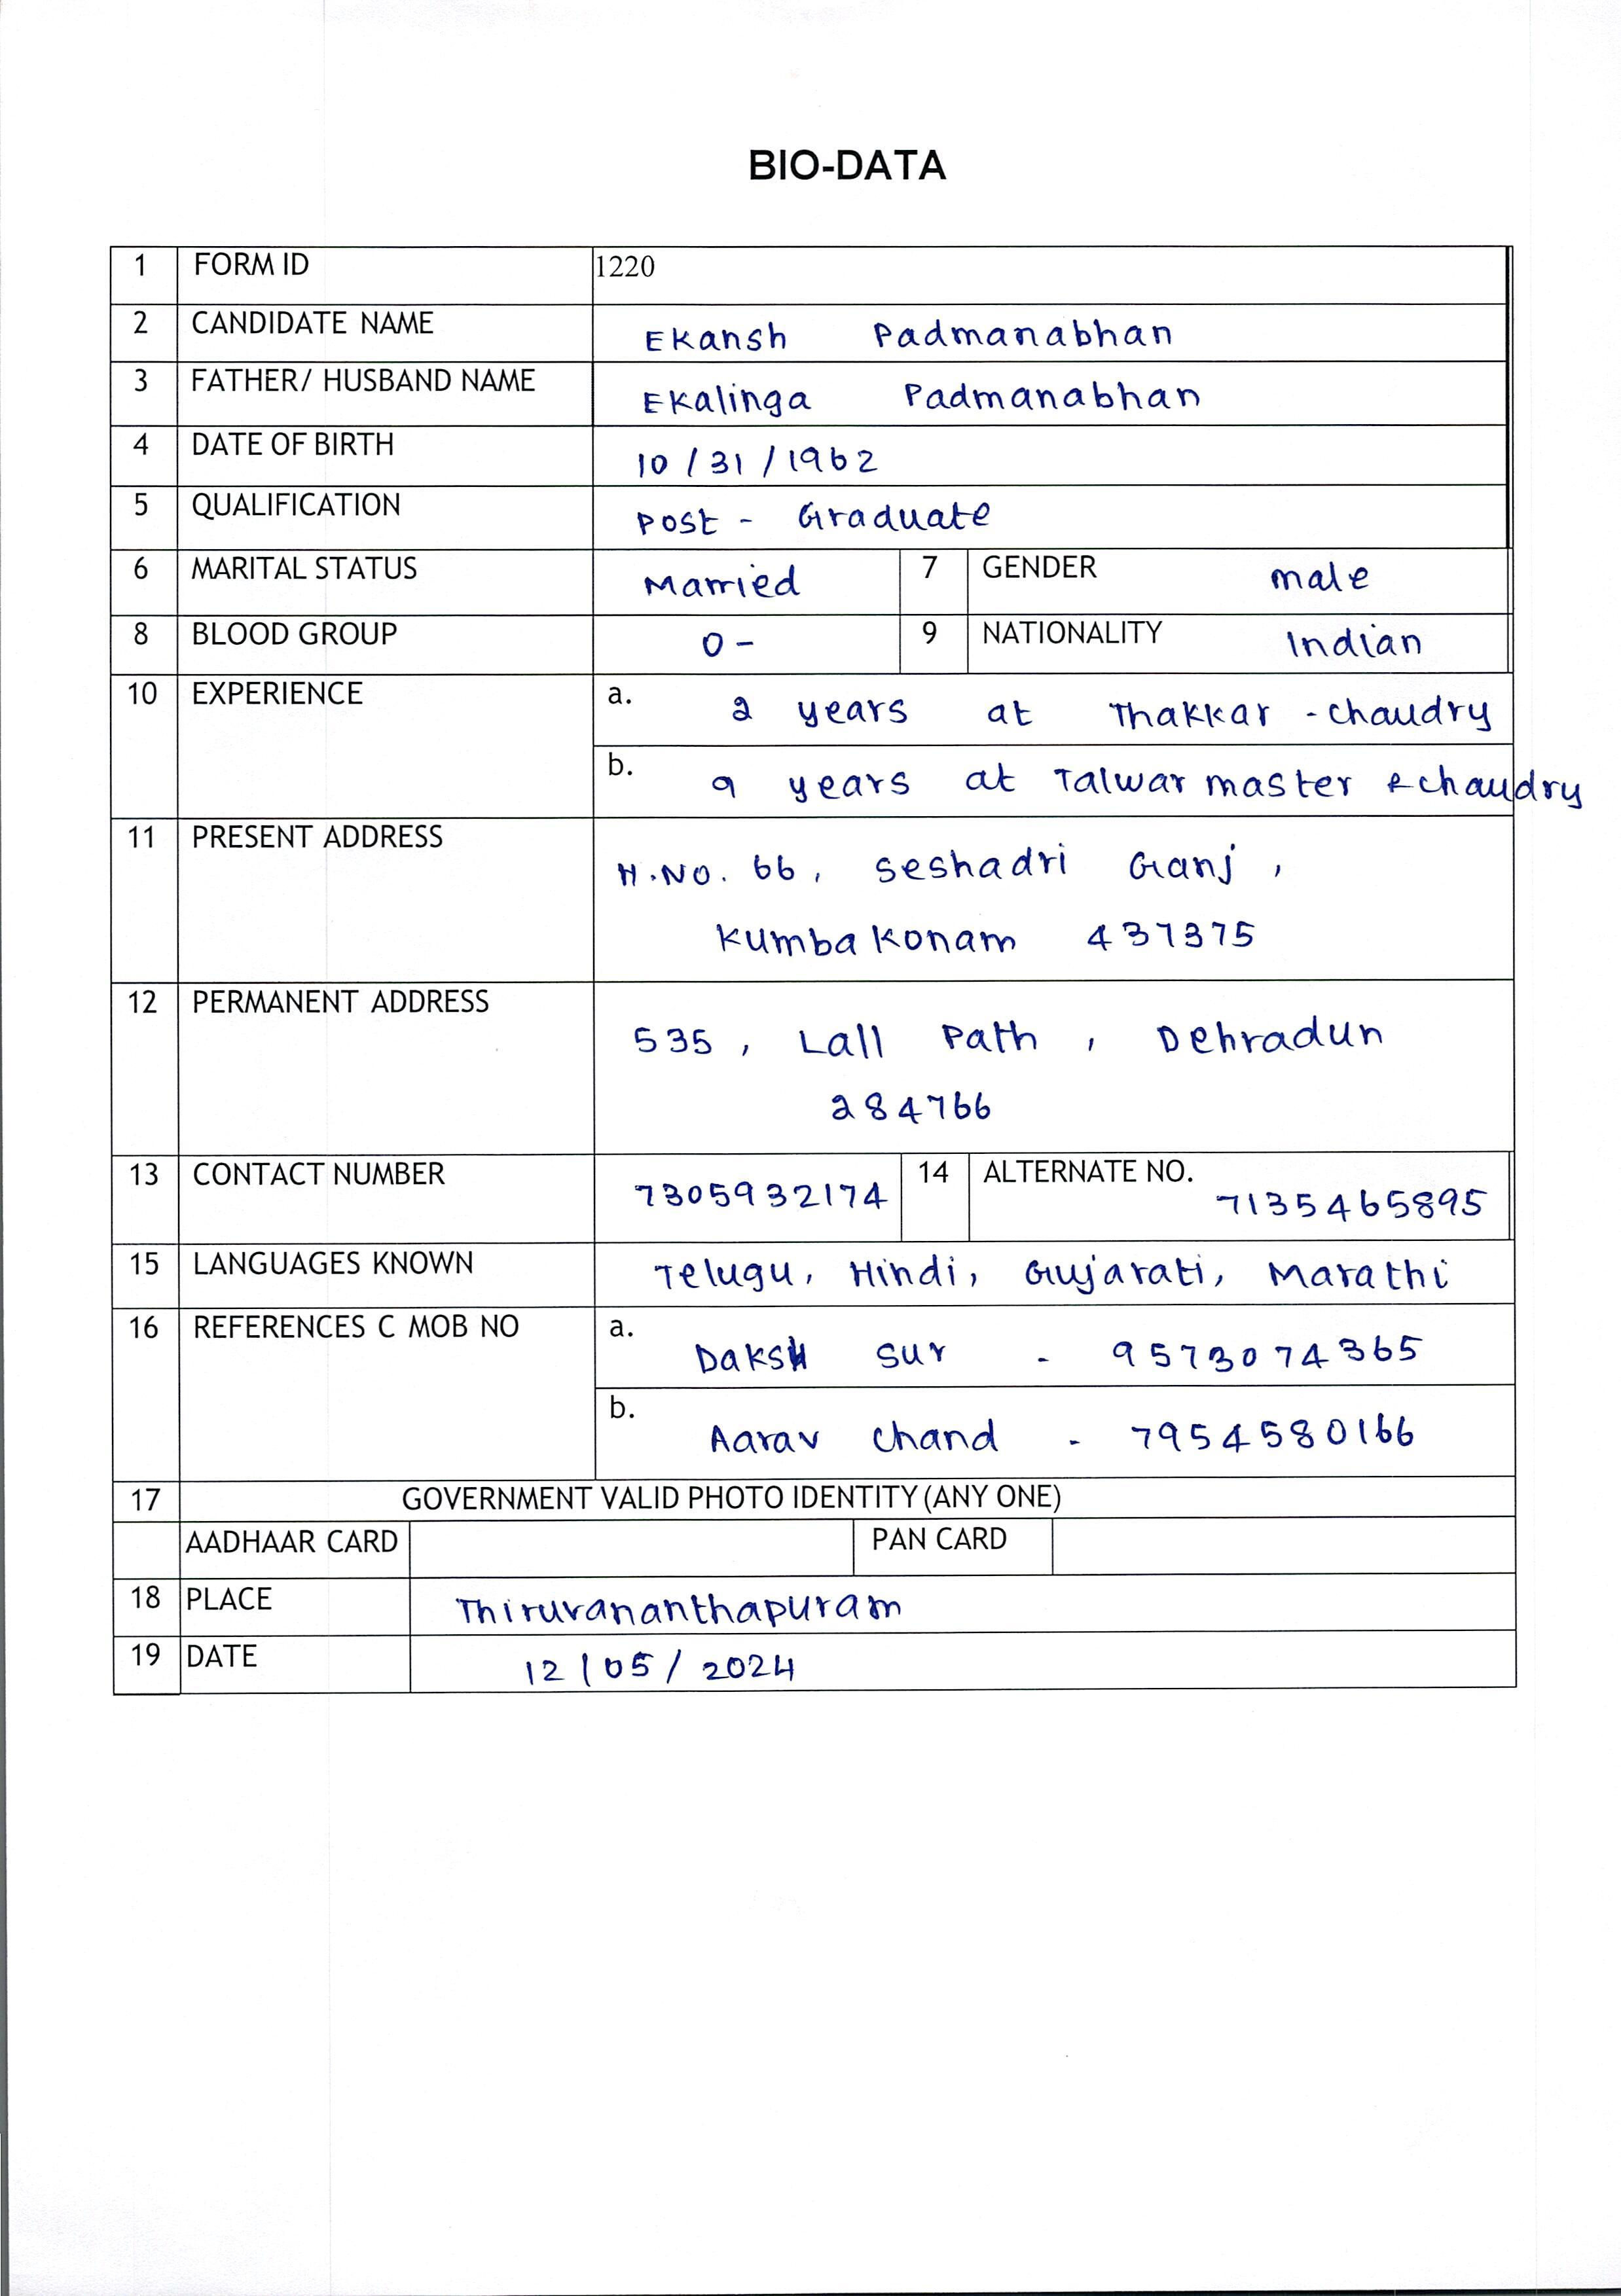 BIO-DATA
1 FORM ID 1220
2 CANDIDATE NAME Ekansh Padmanabhan
3 FATHER/ HUSBAND NAME Ekalinga Padmanabhan
4 DATE OF BIRTH 10/31/1962
5 QUALIFICATION Post - Graduate
6 MARITAL STATUS Married 7 GENDER male
8 BLOOD GROUP O- 9 NATIONALITY Indian
10 EXPERIENCE a. 2 years at Thakkar - chaudry
b. 9 years at Talwar master & chaudry
11 PRESENT ADDRESS H.NO. 66, Seshadri Ganj,
Kumbakonam 437375
12 PERMANENT ADDRESS 535, Lall Path, Dehradun
284766
13 CONTACT NUMBER 7305932174 14 ALTERNATE NO. 7135465895
15 LANGUAGES KNOWN Telugu, Hindi, Gujarati, Marathi
16 REFERENCES C MOB NO a. Daksh Sur - 9573074365
b. Aarav Chand - 7954580166
17 GOVERNMENT VALID PHOTO IDENTITY (ANY ONE)
AADHAAR CARD PAN CARD
18 PLACE Thiruvananthapuram
19 DATE 12/05/2024